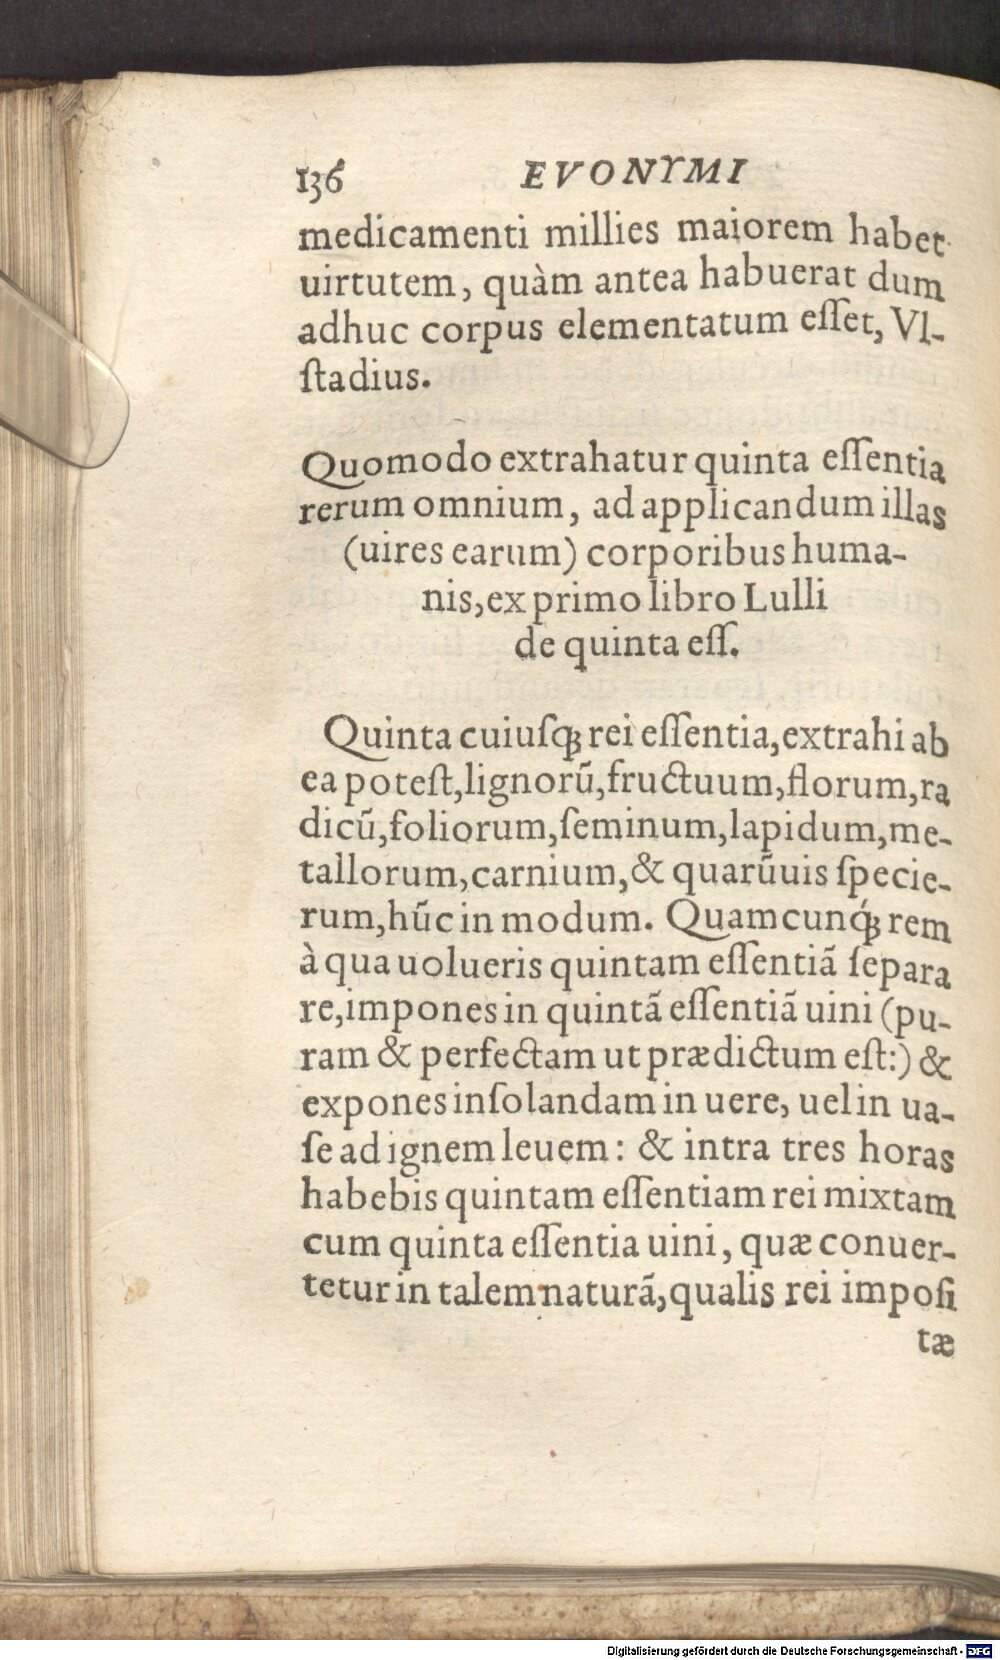 136 EVONYMI
medicamenti millies maiorem habet
uirtutem, quàm antea habuerat dum
adhuc corpus elementatum eſſet, Vl-
ſtadius.
Quomodo extrahatur quinta eſſentia
rerum omnium, ad applicandum illas
(uires earum) corporibus huma-
nis, ex primo libro Lulli
de quinta eſſ.
Quinta cuiuſq; rei eſſentia, extrahi ab
ea poteſt, lignorū, fructuum, florum, ra
dicū, foliorum, ſeminum, lapidum, me-
tallorum, carnium, & quarūuis ſpecie-
rum, hūc in modum. Quamcunq́; rem
à qua uolueris quintam eſſentiã ſepara
re, impones in quintã eſſentiã uini (pu-
ram & perfectam ut prædictum eſt:) &
expones inſolandam in uere, uel in ua-
ſe ad ignem leuem: & intra tres horas
habebis quintam eſſentiam rei mixtam
cum quinta eſſentia uini, quæ conuer-
tetur in talem naturã, qualis rei impoſi
tæ
Digitalisierung gefördert durch die Deutsche Forschungsgemeinschaft - DFG